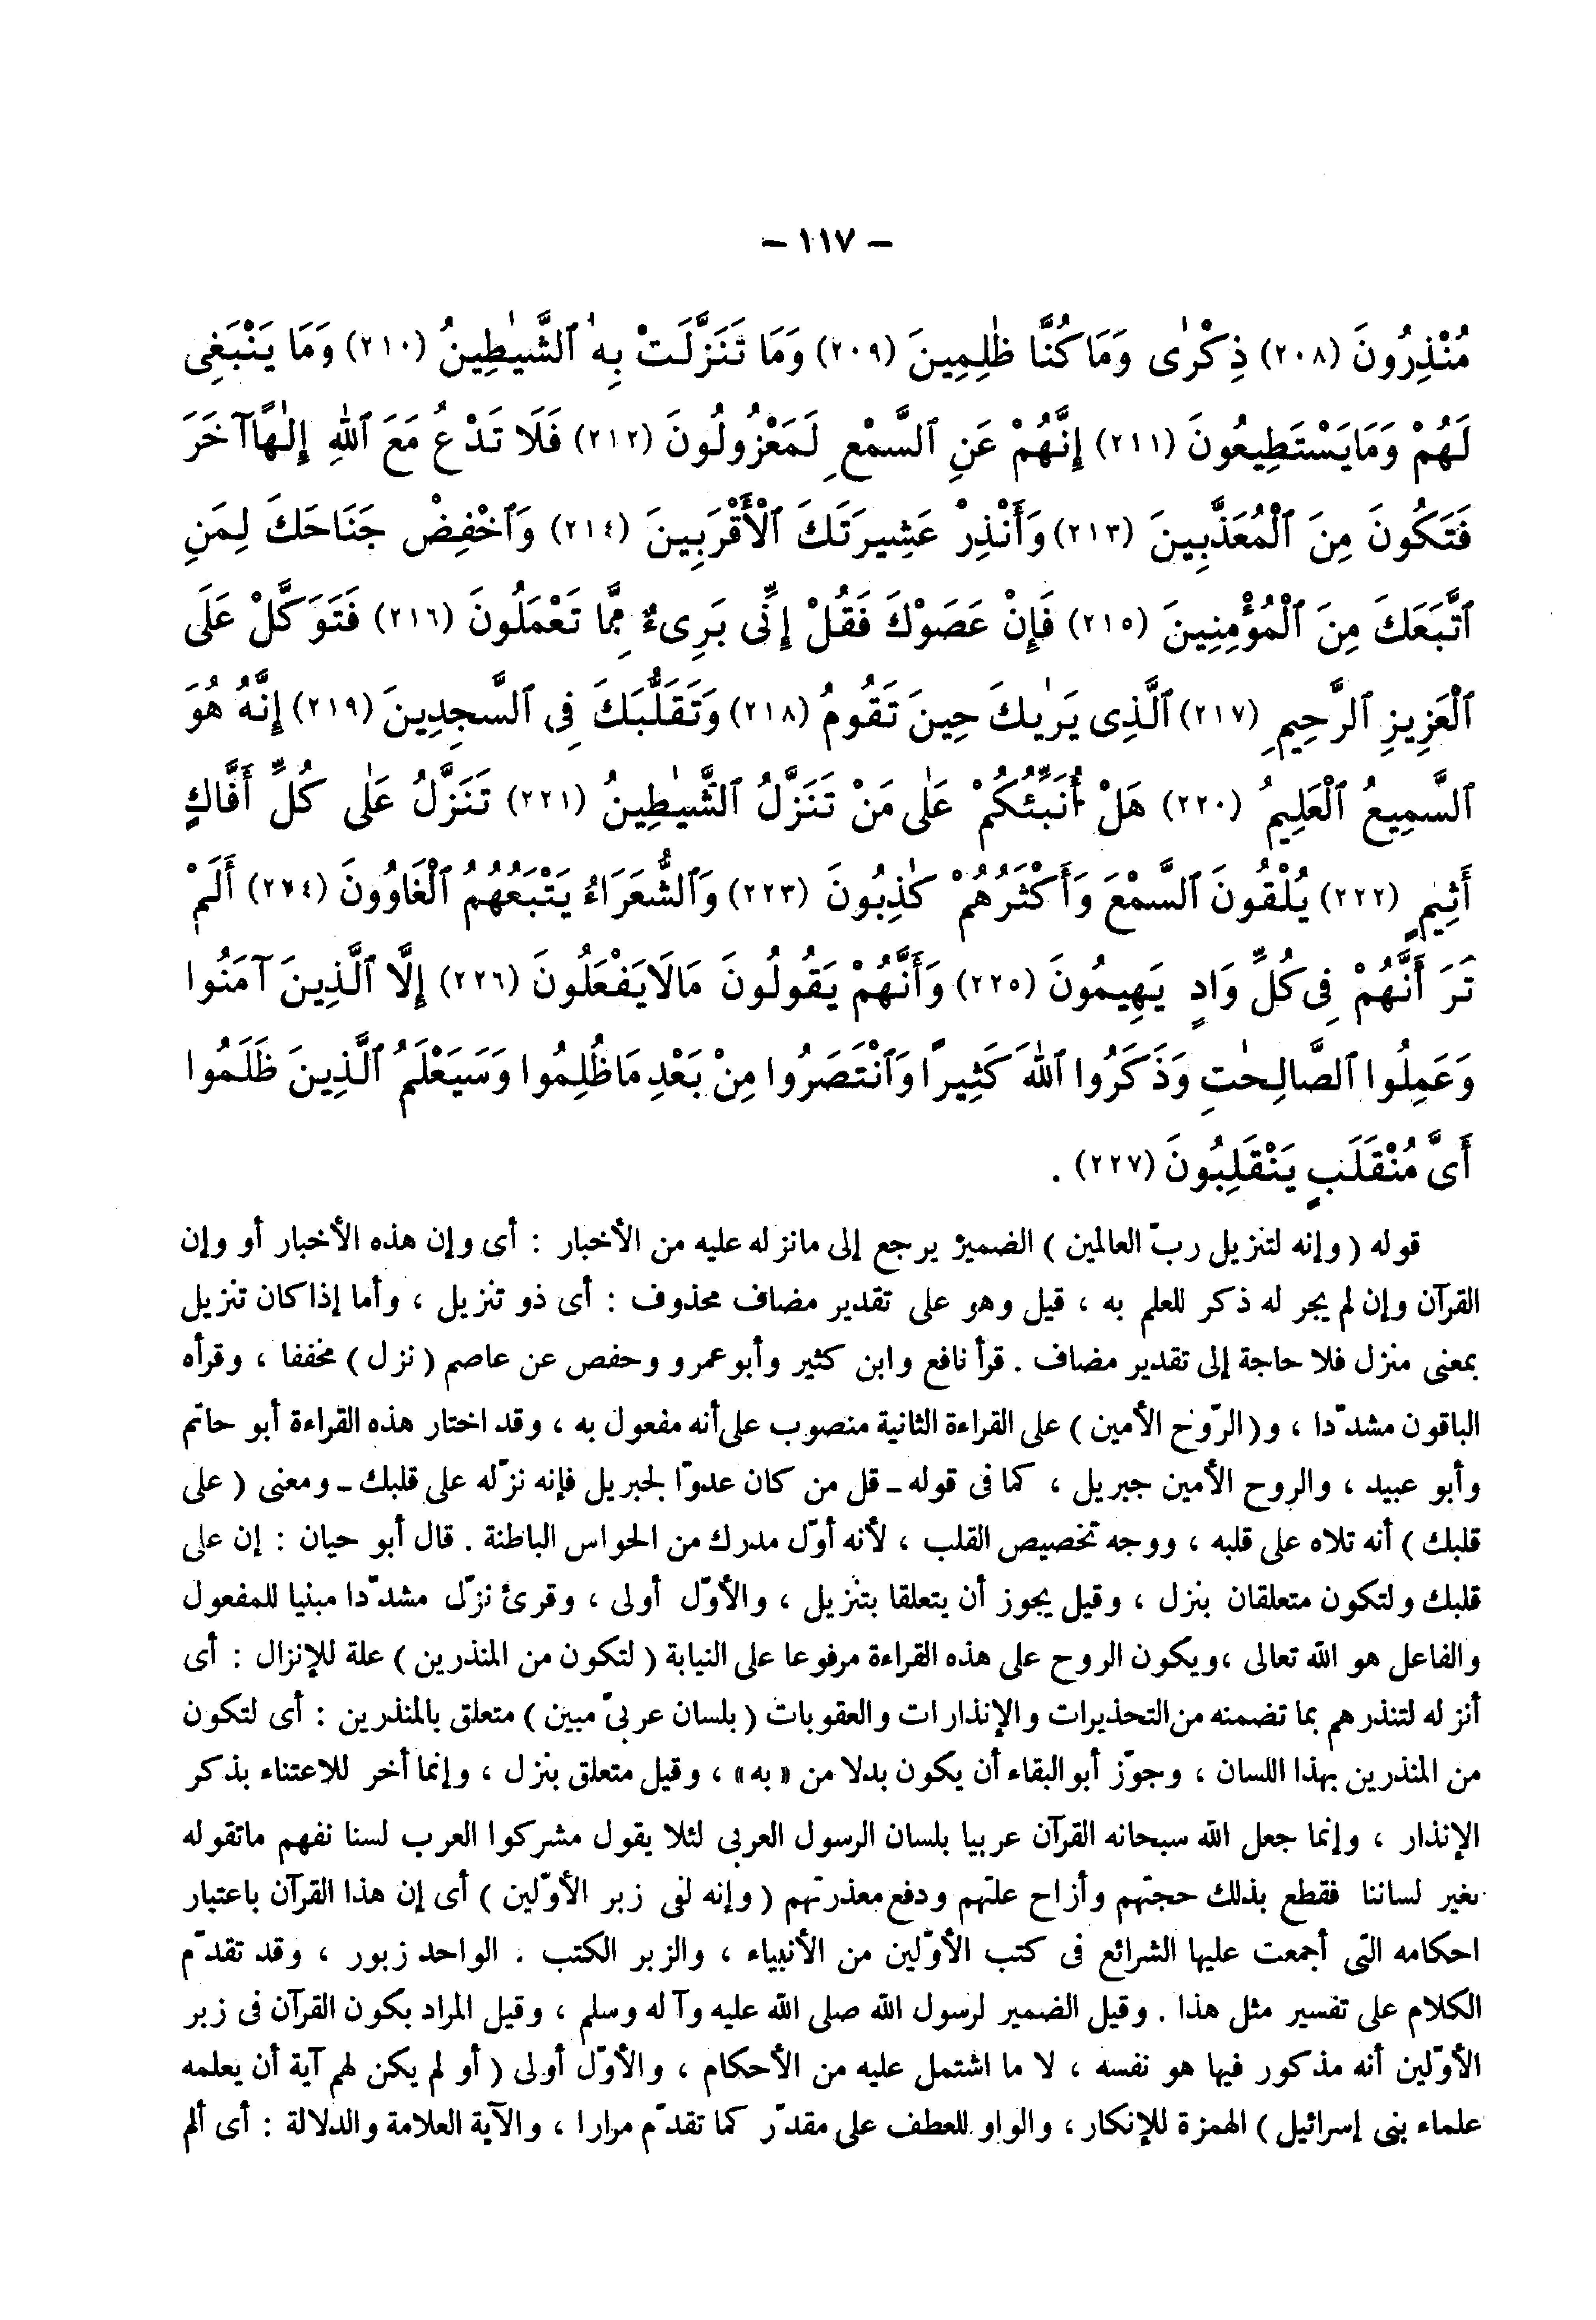 – ١١٧ –
مُنْذِرُونَ (٢٠٨) ذِكْرٰى وَمَا كُنَّا ظٰلِمِينَ (٢٠٩) وَمَا تَنَزَّلَتْ بِهِ ٱلشَّيٰطِينُ (٢١٠) وَمَا يَنْبَغِى
لَهُمْ وَمَا يَسْتَطِيعُونَ (٢١١) إِنَّهُمْ عَنِ ٱلسَّمْعِ لَمَعْزُولُونَ (٢١٢) فَلَا تَدْعُ مَعَ ٱللهِ إِلٰهًا آخَرَ
فَتَكُونَ مِنَ ٱلْمُعَذَّبِينَ (٢١٣) وَأَنْذِرْ عَشِيرَتَكَ ٱلْأَقْرَبِينَ (٢١٤) وَٱخْفِضْ جَنَاحَكَ لِمَنِ
ٱتَّبَعَكَ مِنَ ٱلْمُؤْمِنِينَ (٢١٥) فَإِنْ عَصَوْكَ فَقُلْ إِنِّى بَرِىءٌ مِمَّا تَعْمَلُونَ (٢١٦) فَتَوَكَّلْ عَلَى
ٱلْعَزِيزِ ٱلرَّحِيمِ (٢١٧) ٱلَّذِى يَرٰيكَ حِينَ تَقُومُ (٢١٨) وَتَقَلُّبَكَ فِى ٱلسَّٰجِدِينَ (٢١٩) إِنَّهُ هُوَ
ٱلسَّمِيعُ ٱلْعَلِيمُ (٢٢٠) هَلْ أُنَبِّئُكُمْ عَلٰى مَنْ تَنَزَّلُ ٱلشَّيٰطِينُ (٢٢١) تَنَزَّلُ عَلٰى كُلِّ أَفَّاكٍ
أَثِيمٍ (٢٢٢) يُلْقُونَ ٱلسَّمْعَ وَأَكْثَرُهُمْ كٰذِبُونَ (٢٢٣) وَٱلشُّعَرَاءُ يَتَّبِعُهُمُ ٱلْغَاوُونَ (٢٢٤) أَلَمْ
تَرَ أَنَّهُمْ فِى كُلِّ وَادٍ يَهِيمُونَ (٢٢٥) وَأَنَّهُمْ يَقُولُونَ مَالَا يَفْعَلُونَ (٢٢٦) إِلَّا ٱلَّذِينَ آمَنُوا
وَعَمِلُوا ٱلصَّالِحٰتِ وَذَكَرُوا ٱللهَ كَثِيرًا وَٱنْتَصَرُوا مِنْ بَعْدِ مَا ظُلِمُوا وَسَيَعْلَمُ ٱلَّذِينَ ظَلَمُوا
أَىَّ مُنْقَلَبٍ يَنْقَلِبُونَ (٢٢٧) .
قوله ( وإنه لتنزيل ربّ العالمين ) الضمير يرجع إلى مانزله عليه من الأخبار : أى وإن هذه الأخبار أو وإن
القرآن وإن لم يجر له ذكر للعلم به ، قيل وهو على تقدير مضاف محذوف : أى ذو تنزيل ، وأما إذا كان تنزيل
بمعنى منزل فلا حاجة إلى تقدير مضاف . قرأ نافع وابن كثير وأبو عمرو وحفص عن عاصم ( نزل ) مخففا ، وقرأه
الباقون مشدّدا ، و( الرّوح الأمين ) على القراءة الثانية منصوب على أنه مفعول به ، وقد اختار هذه القراءة أبو حاتم
وأبو عبيد ، والروح الأمين جبريل ، كما فى قوله ـ قل من كان عدوّا لجبريل فإنه نزّله على قلبك ـ ومعنى ( على
قلبك ) أنه تلاه على قلبه ، ووجه تخصيص القلب ، لأنه أوّل مدرك من الحواس الباطنة . قال أبو حيان : إن على
قلبك ولتكون متعلقان بنزل ، وقيل يجوز أن يتعلقا بتنزيل ، والأوّل أولى ، وقرئ نزّل مشدّدا مبنيا للمفعول
والفاعل هو الله تعالى ، ويكون الروح على هذه القراءة مرفوعا على النيابة ( لتكون من المنذرين ) علة للإنزال : أى
أنزله لتنذرهم بما تضمنه من التحذيرات والإنذارات والعقوبات ( بلسان عربىّ مبين ) متعلق بالمنذرين : أى لتكون
من المنذرين بهذا اللسان ، وجوّز أبو البقاء أن يكون بدلا من « به » ، وقيل متعلق بنزل ، وإنما أخر للاعتناء بذكر
الإنذار ، وإنما جعل الله سبحانه القرآن عربيا بلسان الرسول العربى لئلا يقول مشركوا العرب لسنا نفهم ماتقوله
بغير لساننا فقطع بذلك حجتهم وأزاح علتهم ودفع معذرتهم ( وإنه لفى زبر الأوّلين ) أى إن هذا القرآن باعتبار
احكامه التى أجمعت عليها الشرائع فى كتب الأوّلين من الأنبياء ، والزبر الكتب . الواحد زبور ، وقد تقدّم
الكلام على تفسير مثل هذا . وقيل الضمير لرسول الله صلى الله عليه وآله وسلم ، وقيل المراد بكون القرآن فى زبر
الأوّلين أنه مذكور فيها هو نفسه ، لا ما اشتمل عليه من الأحكام ، والأوّل أولى ( أو لم يكن لهم آية أن يعلمه
علماء بنى إسرائيل ) الهمزة للإنكار ، والواو للعطف على مقدّر كما تقدّم مرارا ، والآية العلامة والدلالة : أى ألم